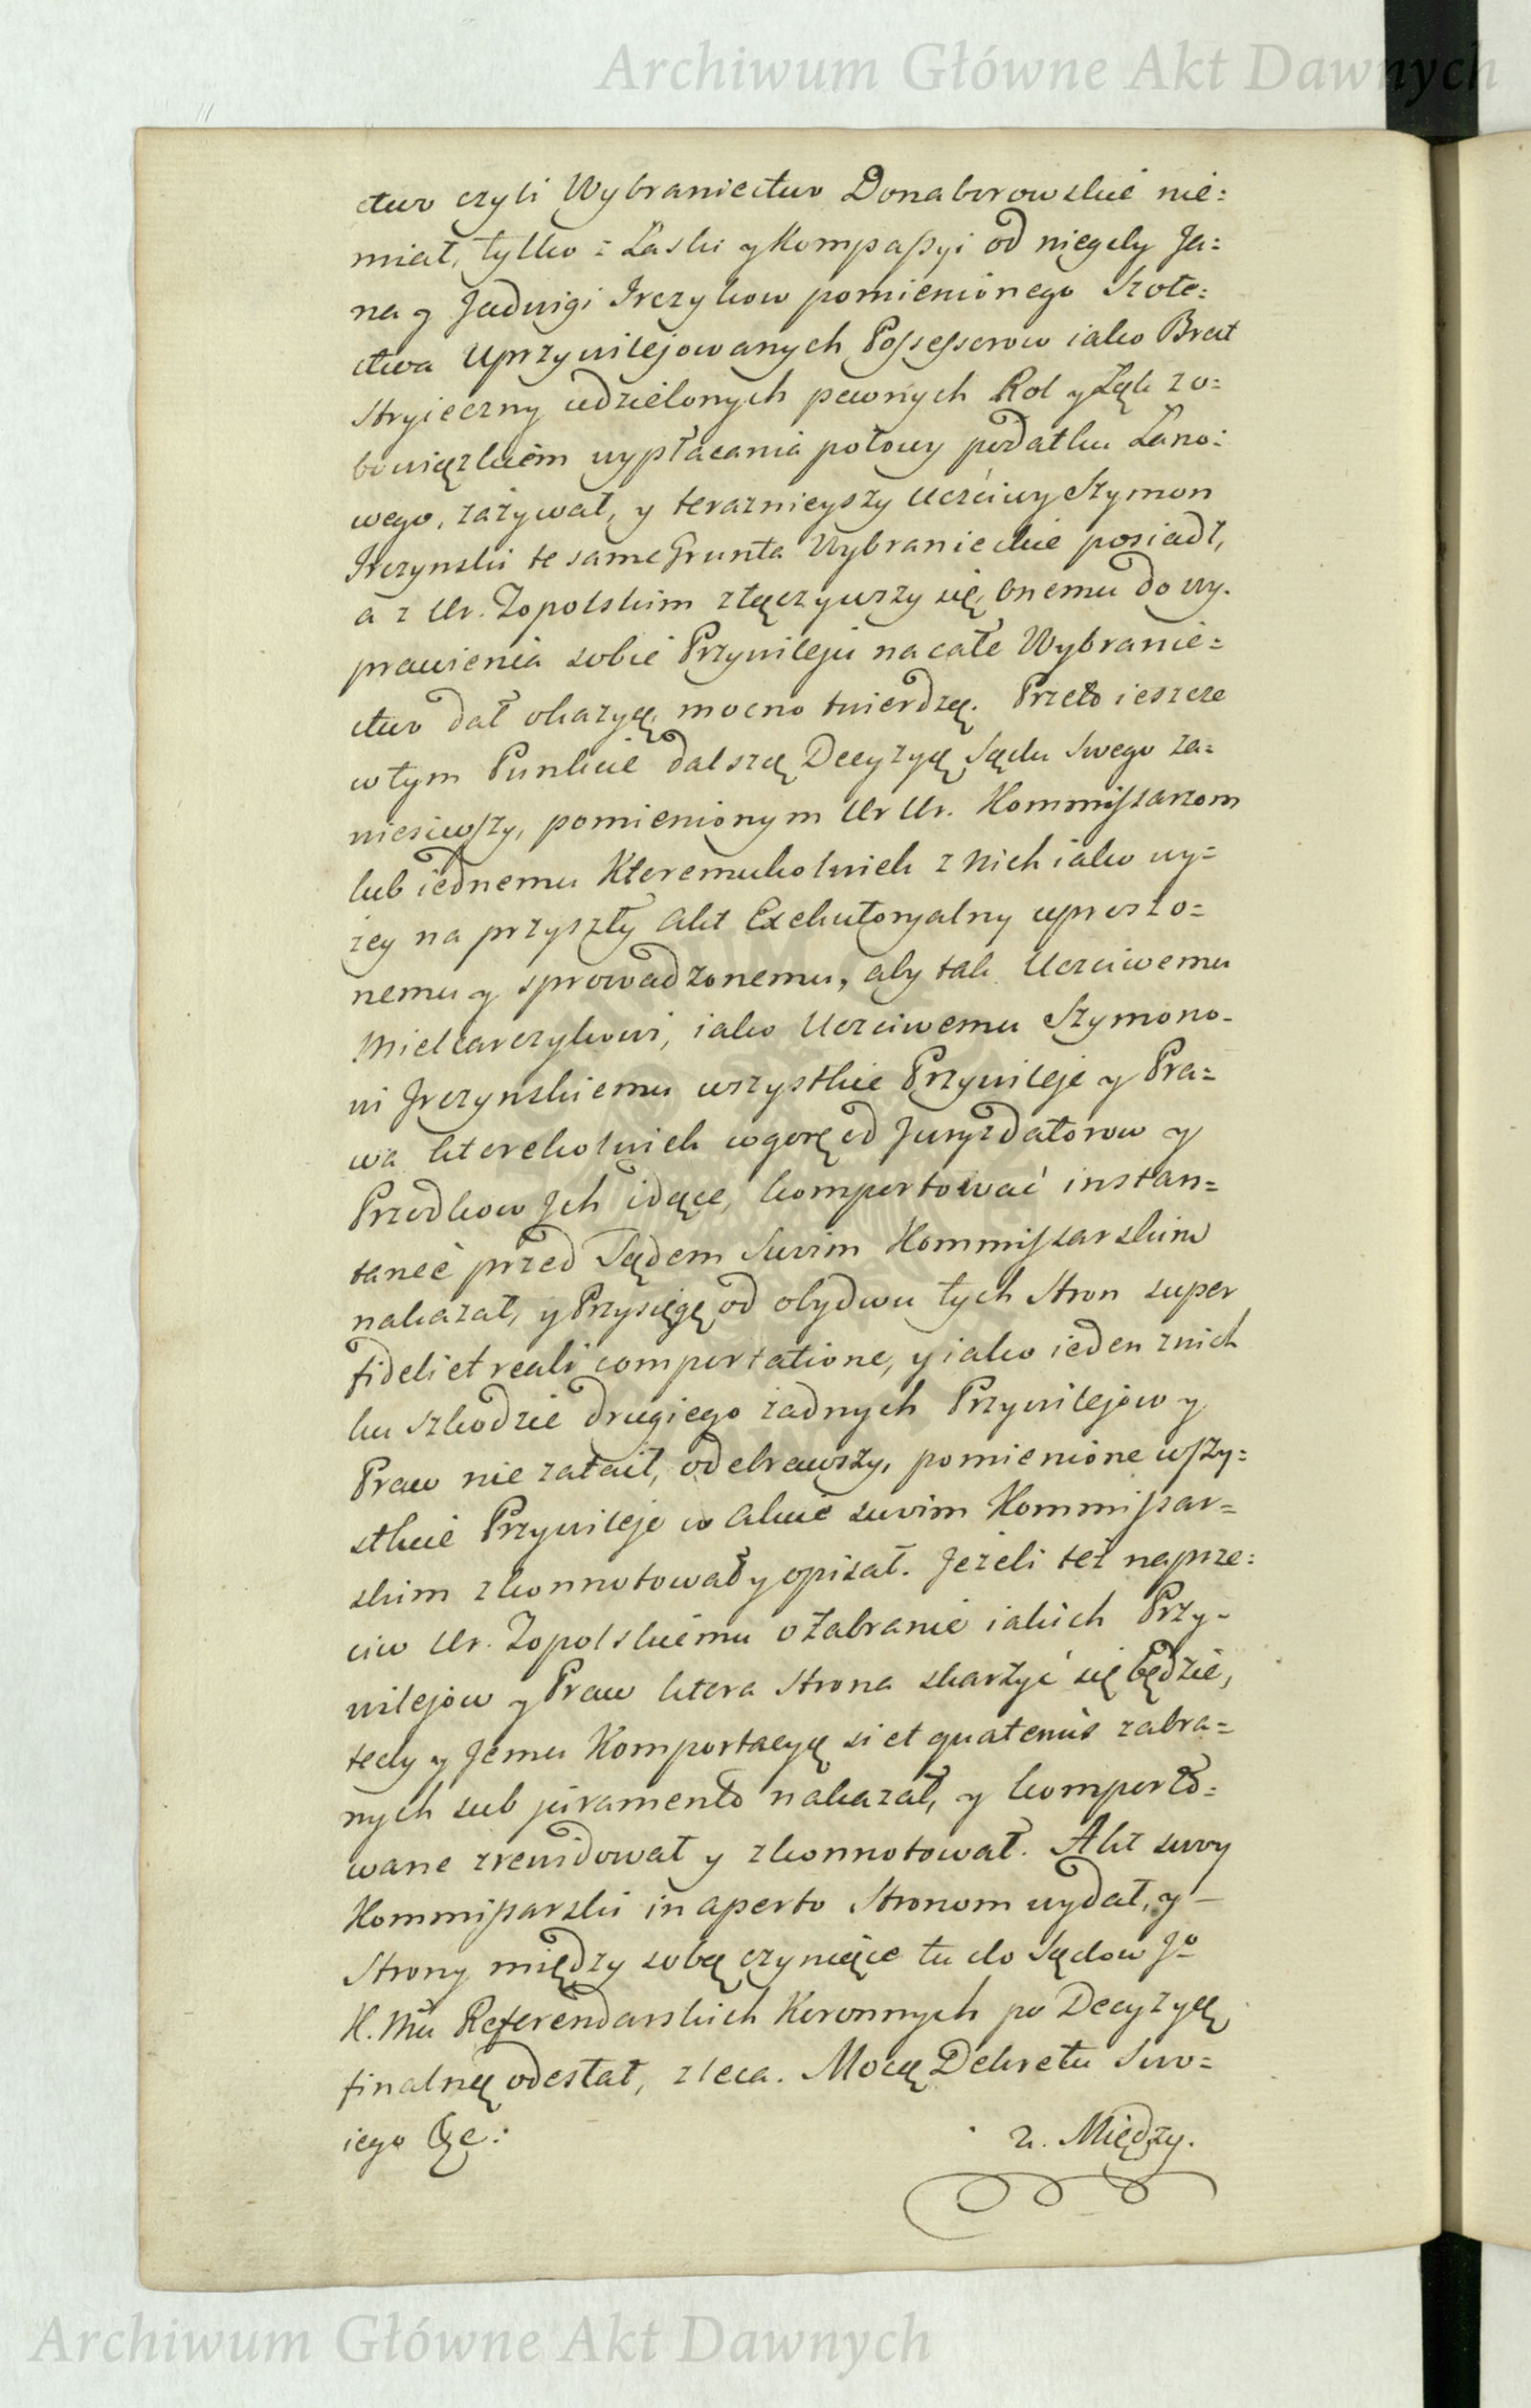 Archiwum Główne Akt Dawnych
ctwo czyli Wybraniectwo Donaborowskie nie=
miał, tylko z Łaski y Kompaßyi od niegdy Ja=
na y Jadwigi Jrczykow pomienionego Szołe=
ctwa Uprzywilejowanych Possessorow iako Brat
Stryieczny udzielonych pewnych Rol y Łąk z o=
bowiązkiem wypłacania połowy podatku Łano=
wego, zażywał, y teraznieyszy Uczciwy Szymon
Jrczynski te same Grunta Wybranieckie posiadł,
a z Ur. Zopolskim złączywszy się, onemu do wy=
prawienia sobie Przywileju na całe Wybranie=
ctwo dał okazyę, mocno twierdzą. Przeto ieszcze
w tym Punkcie dalszą Decyzyę Sądu Swego za=
niesiwszy, pomienionym Ur Ur. Kommissarzom
lub iednemu Ktoremukolwiek z nich iako wy=
żey na przyszły Akt Exekutoryalny uproszo=
nemu y sprowadzonemu, aby tak Uczciwemu
Mielcarczykowi, iako Uczciwemu Szymono=
wi Jrczynskiemu wszystkie Przywileje y Pra=
wa ktorekolwiek wgorę od Juryzdatorow y
Przodkow Jch idące, komportować instan=
tanee przed Sądem Swoim Kommissarskim
nakazał, y Przysięgę od obydwu tych Stron super
fideli et reali comportatione, y iako ieden z nich
ku szkodzie drugiego żadnych Przywilejow y
Praw nie zataił, odebrawszy, pomienione wszy=
stkie Przywileje w Akcie swoim Kommissar=
skim zkonnotował y opisał. Jeżeli też naprze=
ciw Ur. Zopolskiemu o Zabranie iakich Przy=
wilejow y Praw ktora Strona skarżyć się będzie,
tedy y Jemu Komportacyę si et quatenus zabra=
nych sub juramento nakazał, y komporto=
wane zrewidował y zkonnotował. Akt swoy
Kommissarski in aperto Stronom wydał, y —
Strony między sobą czyniące tu do Sądow Jo
K. Mci Referendarskich Koronnych po Decyzyę
finalną odesłał, zleca. Mocą Dekretu Swo=
iego &c:
z. Między.
Archiwum Główne Akt Dawnych